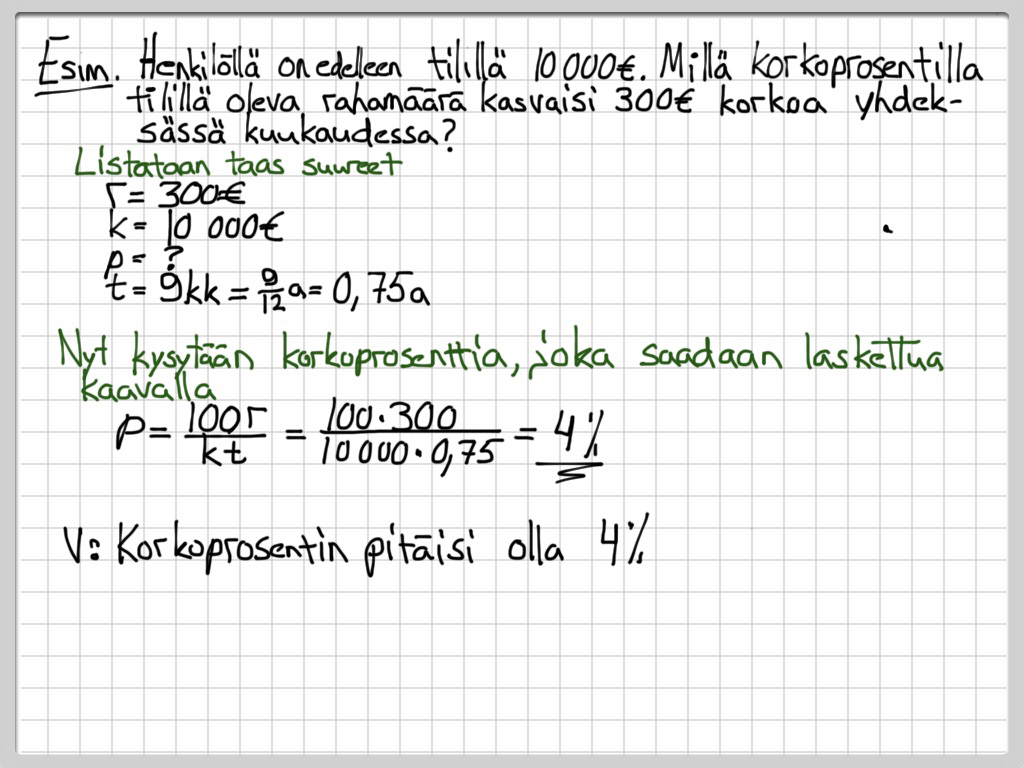 Esim. Henkilöllä on edelleen tilillä 10 000€. Millä korkoprosentilla
tilillä oleva rahamäärä kasvaisi 300€ korkoa yhdek-
sässä kuukaudessa?
Listataan taas suureet
r = 300€
k = 10 000€
p = ?
t = 9kk = 9/12 a = 0,75a
Nyt kysytään korkoprosenttia, joka saadaan laskettua
kaavalla
P = 100r/kt = 100·300/10 000·0,75 = 4%
V: Korkoprosentin pitäisi olla 4%